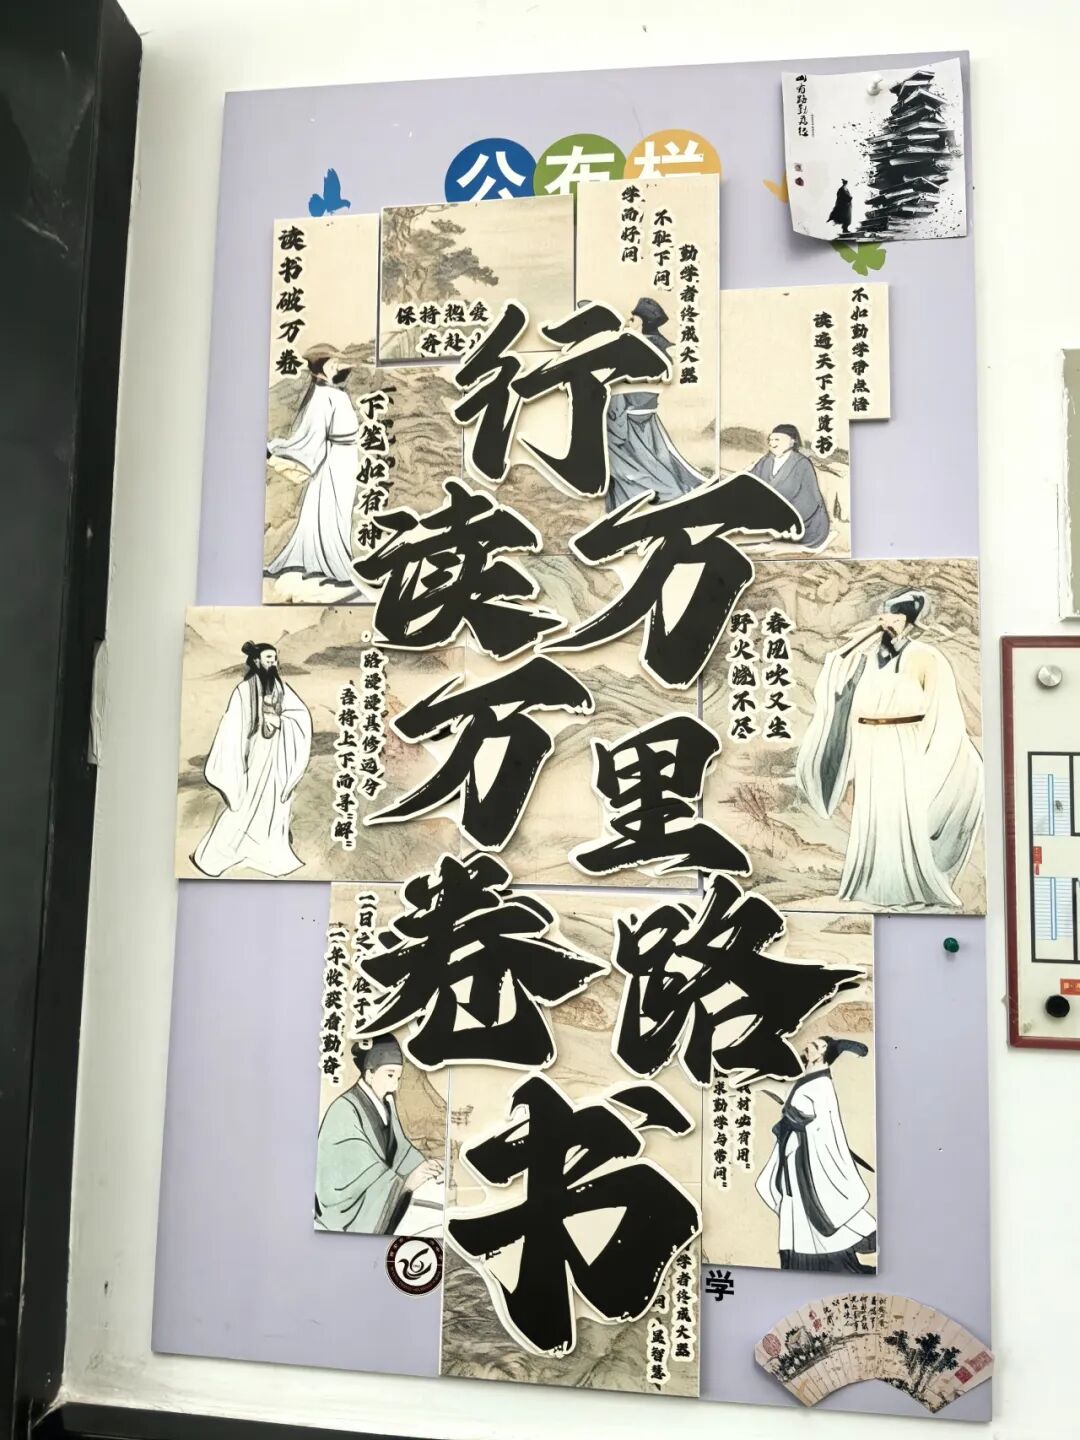 公布栏
山有路勤为径
读书破万卷
下笔如有神
保持热爱
奔赴
学而好问
不耻下问
勤学者终成大器
不如勤学带点悟
读遍天下圣贤书
行万里路
读万卷书
路漫漫其修远兮
吾将上下而寻解
春风吹又生
野火烧不尽
一日之
在于
一年收获看勤奋
材必有用
求勤学与带问
学者终成大器
问是智慧
学